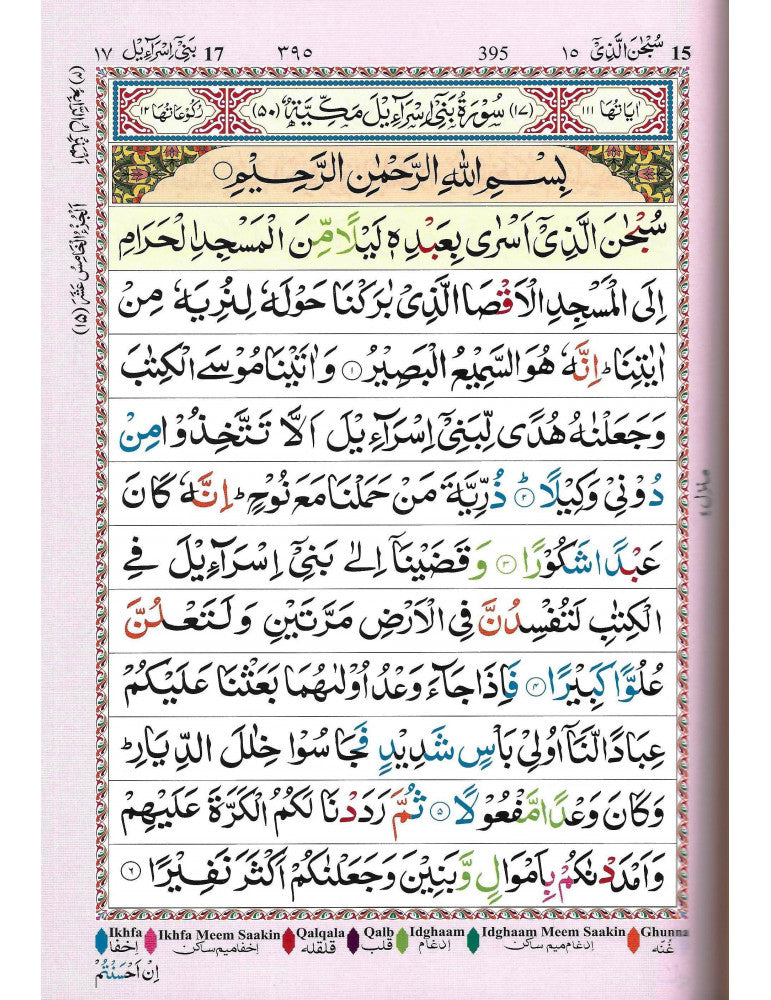 15 سُبْحٰنَ الَّذِیْۤ ۱۵ 395 ۳۹۵ 17 بَنِیْۤ اِسْرَآءِیْل ۱۷
اٰیَاتُهَا ۱۱۱ (۱۷) سُوْرَةُ بَنِیْۤ اِسْرَآءِیْلَ مَكِّیَّةٌ (۵۰) رُكُوْعَاتُهَا ۱۲
بِسْمِ اللّٰهِ الرَّحْمٰنِ الرَّحِیْمِ
سُبْحٰنَ الَّذِیْۤ اَسْرٰی بِعَبْدِهٖ لَیْلًا مِّنَ الْمَسْجِدِ الْحَرَامِ
اِلَی الْمَسْجِدِ الْاَقْصَا الَّذِیْ بٰرَكْنَا حَوْلَهٗ لِنُرِیَهٗ مِنْ
اٰیٰتِنَا ؕ اِنَّهٗ هُوَ السَّمِیْعُ الْبَصِیْرُ ۱ وَاٰتَیْنَا مُوْسَی الْكِتٰبَ
وَجَعَلْنٰهُ هُدًی لِّبَنِیْۤ اِسْرَآءِیْلَ اَلَّا تَتَّخِذُوْا مِنْ
دُوْنِیْ وَكِیْلًا ؕ ۲ ذُرِّیَّةَ مَنْ حَمَلْنَا مَعَ نُوْحٍ ؕ اِنَّهٗ كَانَ
عَبْدًا شَكُوْرًا ۳ وَقَضَیْنَاۤ اِلٰی بَنِیْۤ اِسْرَآءِیْلَ فِی
الْكِتٰبِ لَتُفْسِدُنَّ فِی الْاَرْضِ مَرَّتَیْنِ وَلَتَعْلُنَّ
عُلُوًّا كَبِیْرًا ۴ فَاِذَا جَآءَ وَعْدُ اُوْلٰىهُمَا بَعَثْنَا عَلَیْكُمْ
عِبَادًا لَّنَاۤ اُولِیْ بَاْسٍ شَدِیْدٍ فَجَاسُوْا خِلٰلَ الدِّیَارِ ؕ
وَكَانَ وَعْدًا مَّفْعُوْلًا ۵ ثُمَّ رَدَدْنَا لَكُمُ الْكَرَّةَ عَلَیْهِمْ
وَاَمْدَدْنٰكُمْ بِاَمْوَالٍ وَّبَنِیْنَ وَجَعَلْنٰكُمْ اَكْثَرَ نَفِیْرًا ۶
اَلْجُزْءُ الْخَامِسُ عَشَرَ (۱۵)
Ikhfa Ikhfa Meem Saakin Qalqala Qalb Idghaam Idghaam Meem Saakin Ghunna
اِخفا اِخفا میم ساکن قلقله قلب اِدغام اِدغام میم ساکن غُنّه
اِنْ اَحْسَنْتُمْ